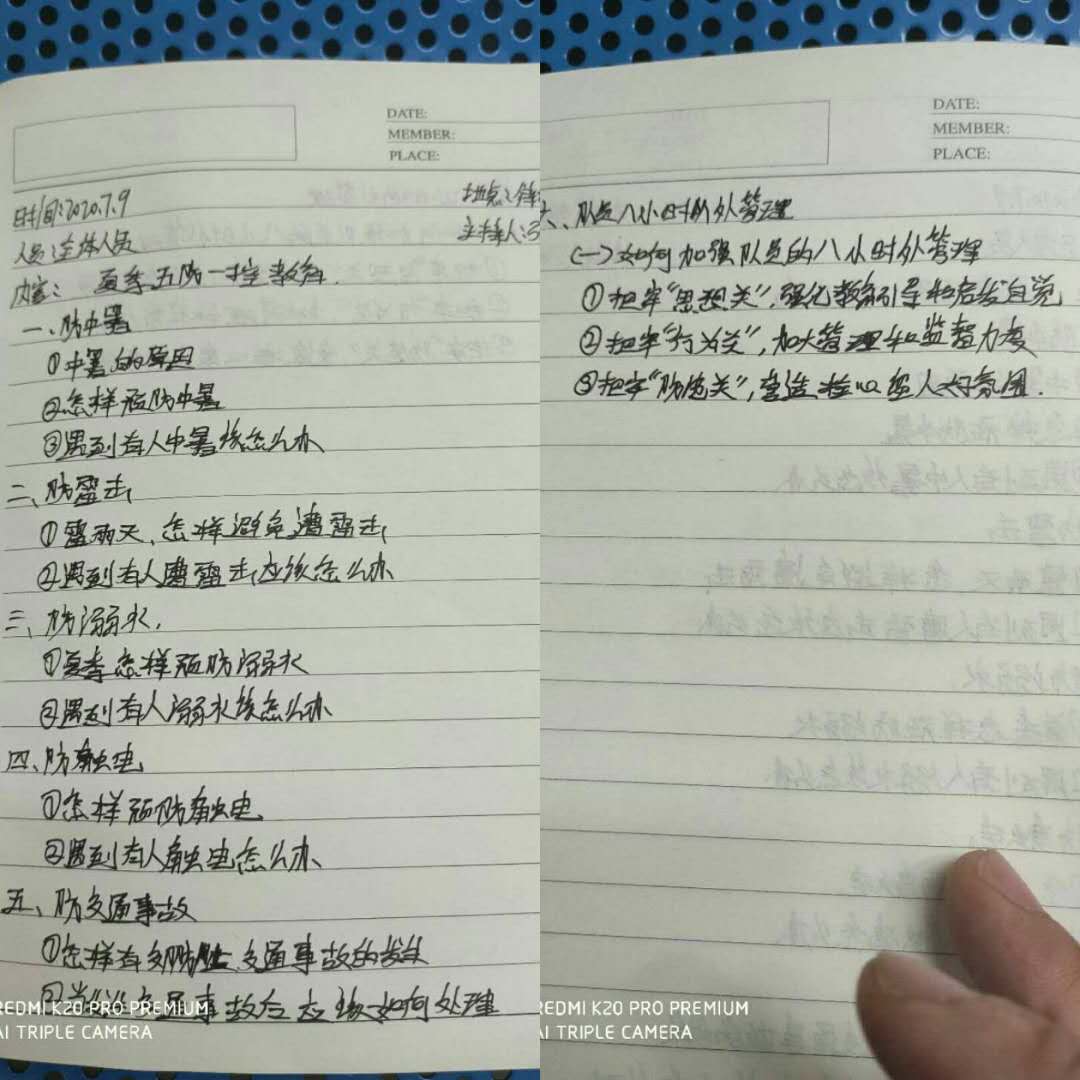 DATE:
MEMBER:
PLACE:
时间:2020.7.9 地点:
人员:全体人员 主持人:
内容: 夏季五防一控教育.
一、防中暑
①中暑的原因
②怎样预防中暑
③遇到有人中暑该怎么办
二、防雷击
①雷雨天、怎样避免遭雷击
②遇到有人遭雷击应该怎么办
三、防溺水.
①夏季怎样预防溺水
②遇到有人溺水该怎么办
四、防触电
①怎样预防触电
②遇到有人触电怎么办
五、防交通事故
①怎样有效防止交通事故的发生
②当发生交通事故后应该如何处理
REDMI K20 PRO PREMIUM
AI TRIPLE CAMERA
DATE:
MEMBER:
PLACE:
六、队员八小时外管理
(一)如何加强队员的八小时外管理
①把牢“思想关”,强化教育引导和启发自觉
②把牢“行为关”,加大管理和监督力度
③把牢“防范关”,营造 人的氛围.
REDMI K20 PRO PREMIUM
AI TRIPLE CAMERA